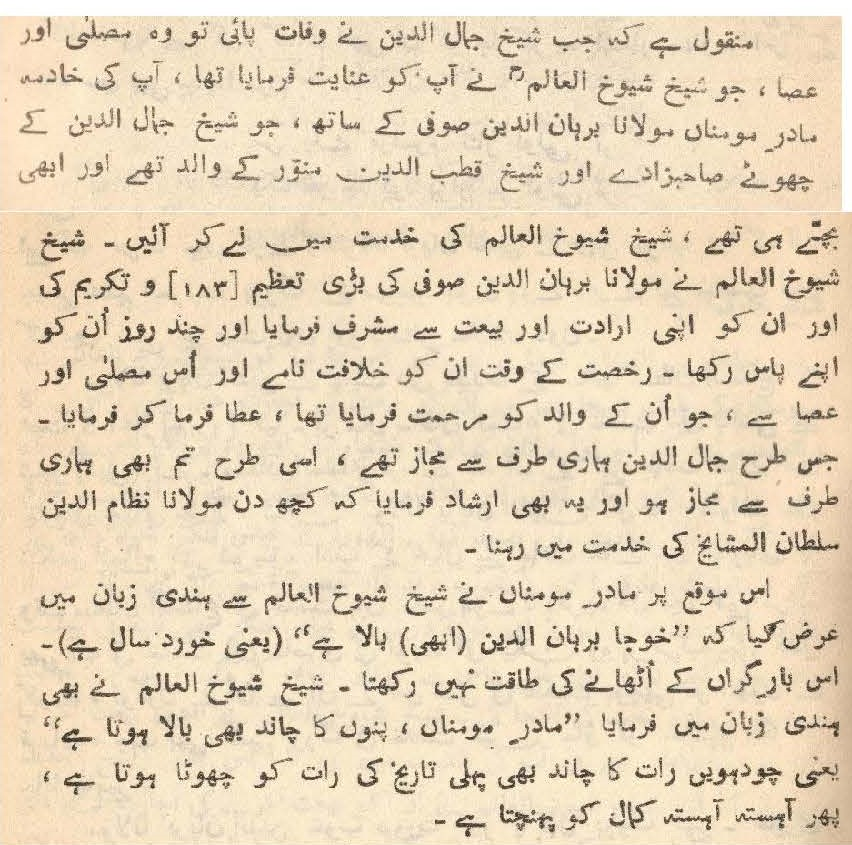 منقول ہے کہ جب شیخ جمال الدین نے وفات پائی تو وہ مصلیٰ اور
عصا ، جو شیخ شیوخ العالمؒ نے آپ کو عنایت فرمایا تھا ، آپ کی خادمہ
مادرِ مومناں مولانا برہان الدین صوفی کے ساتھ ، جو شیخ جمال الدین کے
چھوٹے صاحبزادے اور شیخ قطب الدین منوّر کے والد تھے اور ابھی
بچّے ہی تھے ، شیخ شیوخ العالم کی خدمت میں لے کر آئیں ۔ شیخ
شیوخ العالم نے مولانا برہان الدین صوفی کی بڑی تعظیم [۱۸۳] و تکریم کی
اور ان کو اپنی ارادت اور بیعت سے مشرف فرمایا اور چند روز اُن کو
اپنے پاس رکھا ۔ رخصت کے وقت ان کو خلافت نامے اور اُس مصلیٰ اور
عصا سے ، جو اُن کے والد کو مرحمت فرمایا تھا ، عطا فرما کر فرمایا ۔
جس طرح جمال الدین ہماری طرف سے مجاز تھے ، اسی طرح تم بھی ہماری
طرف سے مجاز ہو اور یہ بھی ارشاد فرمایا کہ کچھ دن مولانا نظام الدین
سلطان المشایخ کی خدمت میں رہنا ۔
اس موقع پر مادرِ مومناں نے شیخ شیوخ العالم سے ہندی زبان میں
عرض کیا کہ ”خوجا برہان الدین (ابھی) بالا ہے“ (یعنی خورد سال ہے)۔
اس بارِ گراں کے اُٹھانے کی طاقت نہیں رکھتا ۔ شیخ شیوخ العالم نے بھی
ہندی زبان میں فرمایا ”مادرِ مومناں ، پنوں کا چاند بھی بالا ہوتا ہے“
یعنی چودہویں رات کا چاند بھی پہلی تاریخ کی رات کو چھوٹا ہوتا ہے ،
پھر آہستہ آہستہ کمال کو پہنچتا ہے ۔